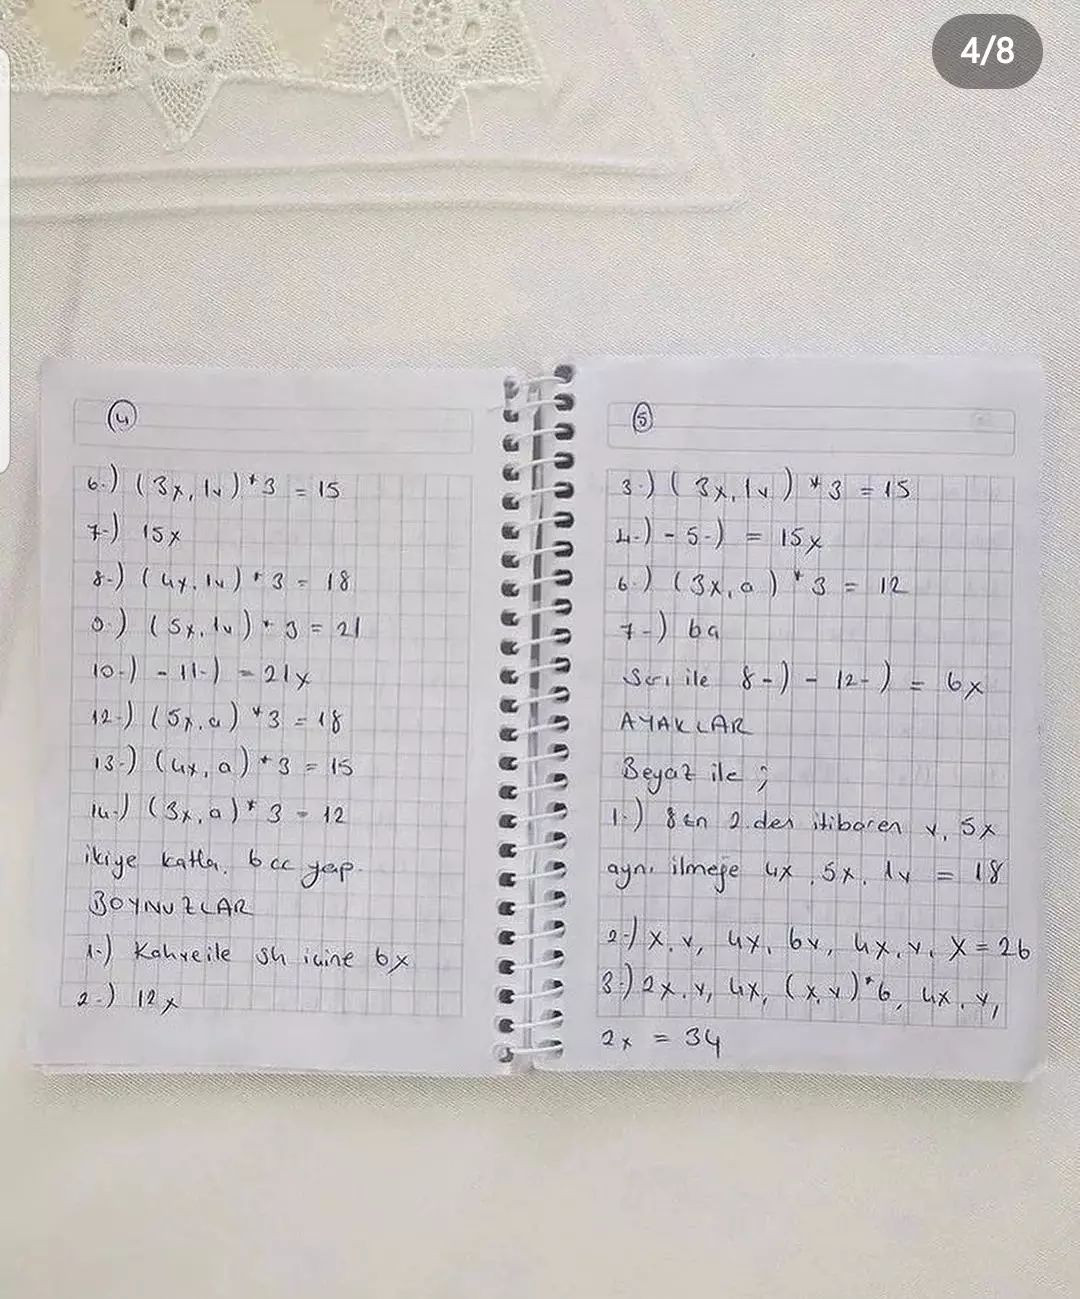 4/8
4
6-) (3x, 1v)*3 = 15
7-) 15x
8-) (4x, 1v)*3 = 18
9-) (5x, 1v)*3 = 21
10-) - 11-) = 21x
12-) (5x, a)*3 = 18
13-) (4x, a)*3 = 15
14-) (3x, a)*3 = 12
ikiye katla. 6 cc yap.
BOYNUZLAR
1-) Kahve ile sh içine 6x
2-) 12x
5
3-) (3x, 1v)*3 = 15
4-) - 5-) = 15x
6-) (3x, a)*3 = 12
7-) 6a
Sarı ile 8-) - 12-) = 6x
AYAKLAR
Beyaz ile ;
1-) 8 zn 2.den itibaren v, 5x
aynı ilmeğe 4x, 5x, 1v = 18
2-) x, v, 4x, 6v, 4x, v, x = 26
3-) 2x, v, 4x, (x,v)*6, 4x, v,
2x = 34